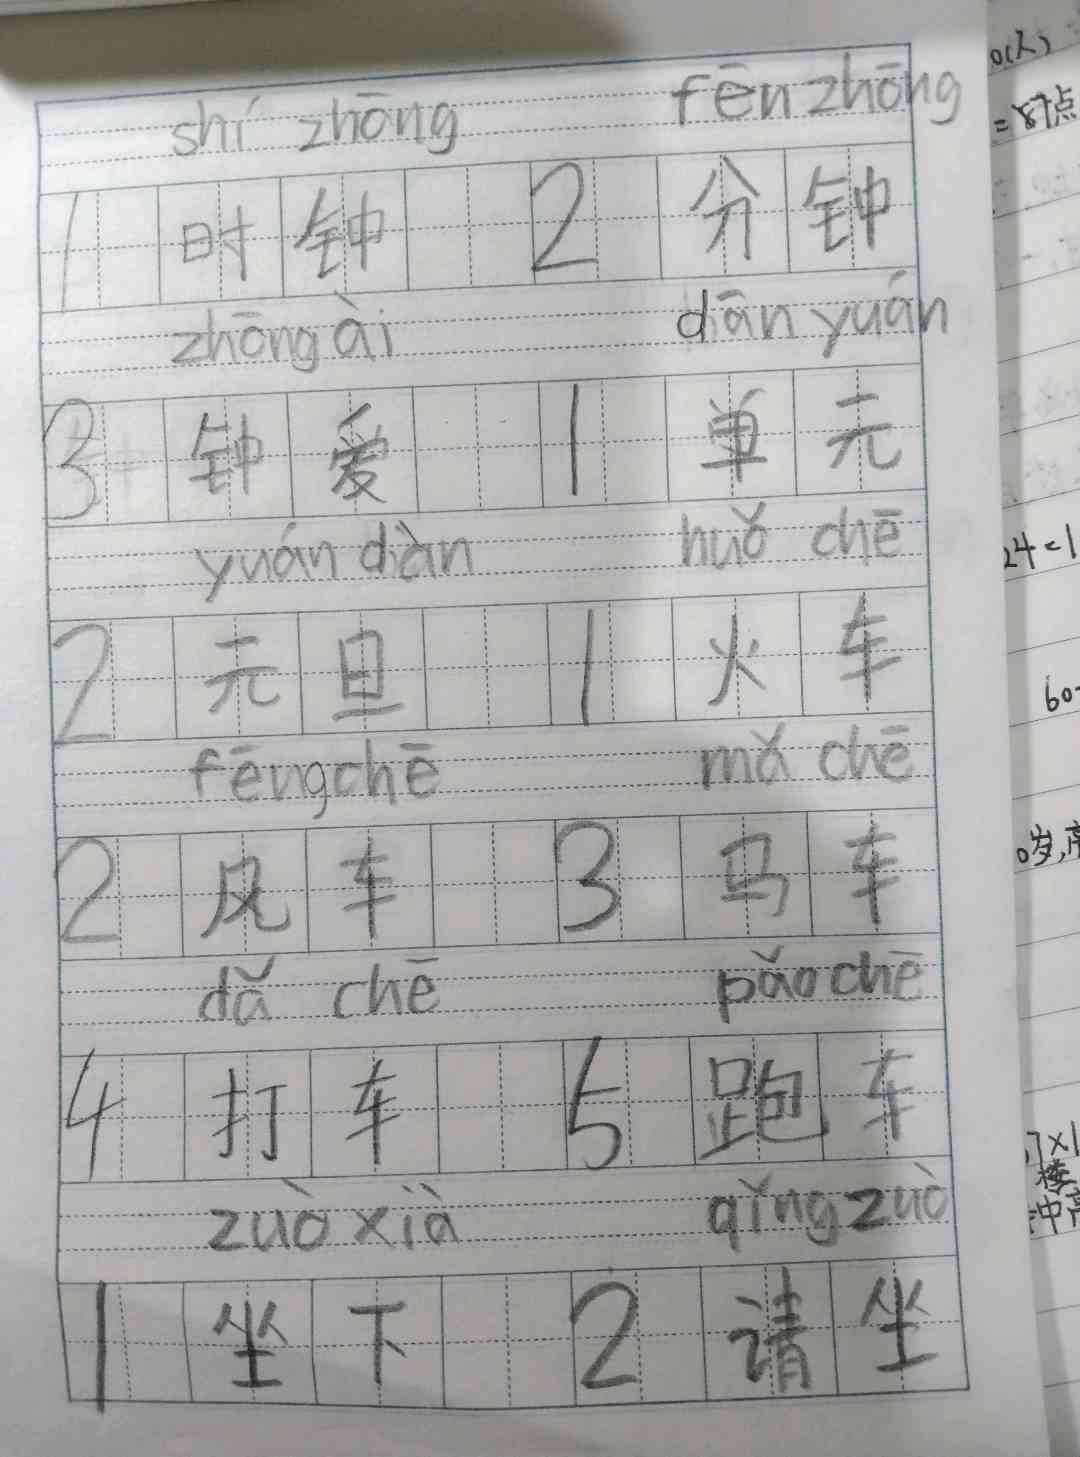 shí zhōng fēn zhōng
1 时钟 2 分钟
zhōng ài dān yuán
3 钟爱 1 单元
yuán dàn huǒ chē
2 元旦 1 火车
fēng chē mǎ chē
2 风车 3 马车
dǎ chē pǎo chē
4 打车 5 跑车
zuò xià qǐng zuò
1 坐下 2 请坐
0(人)
=8个点
24=1
60-
0岁,
7×1
楼